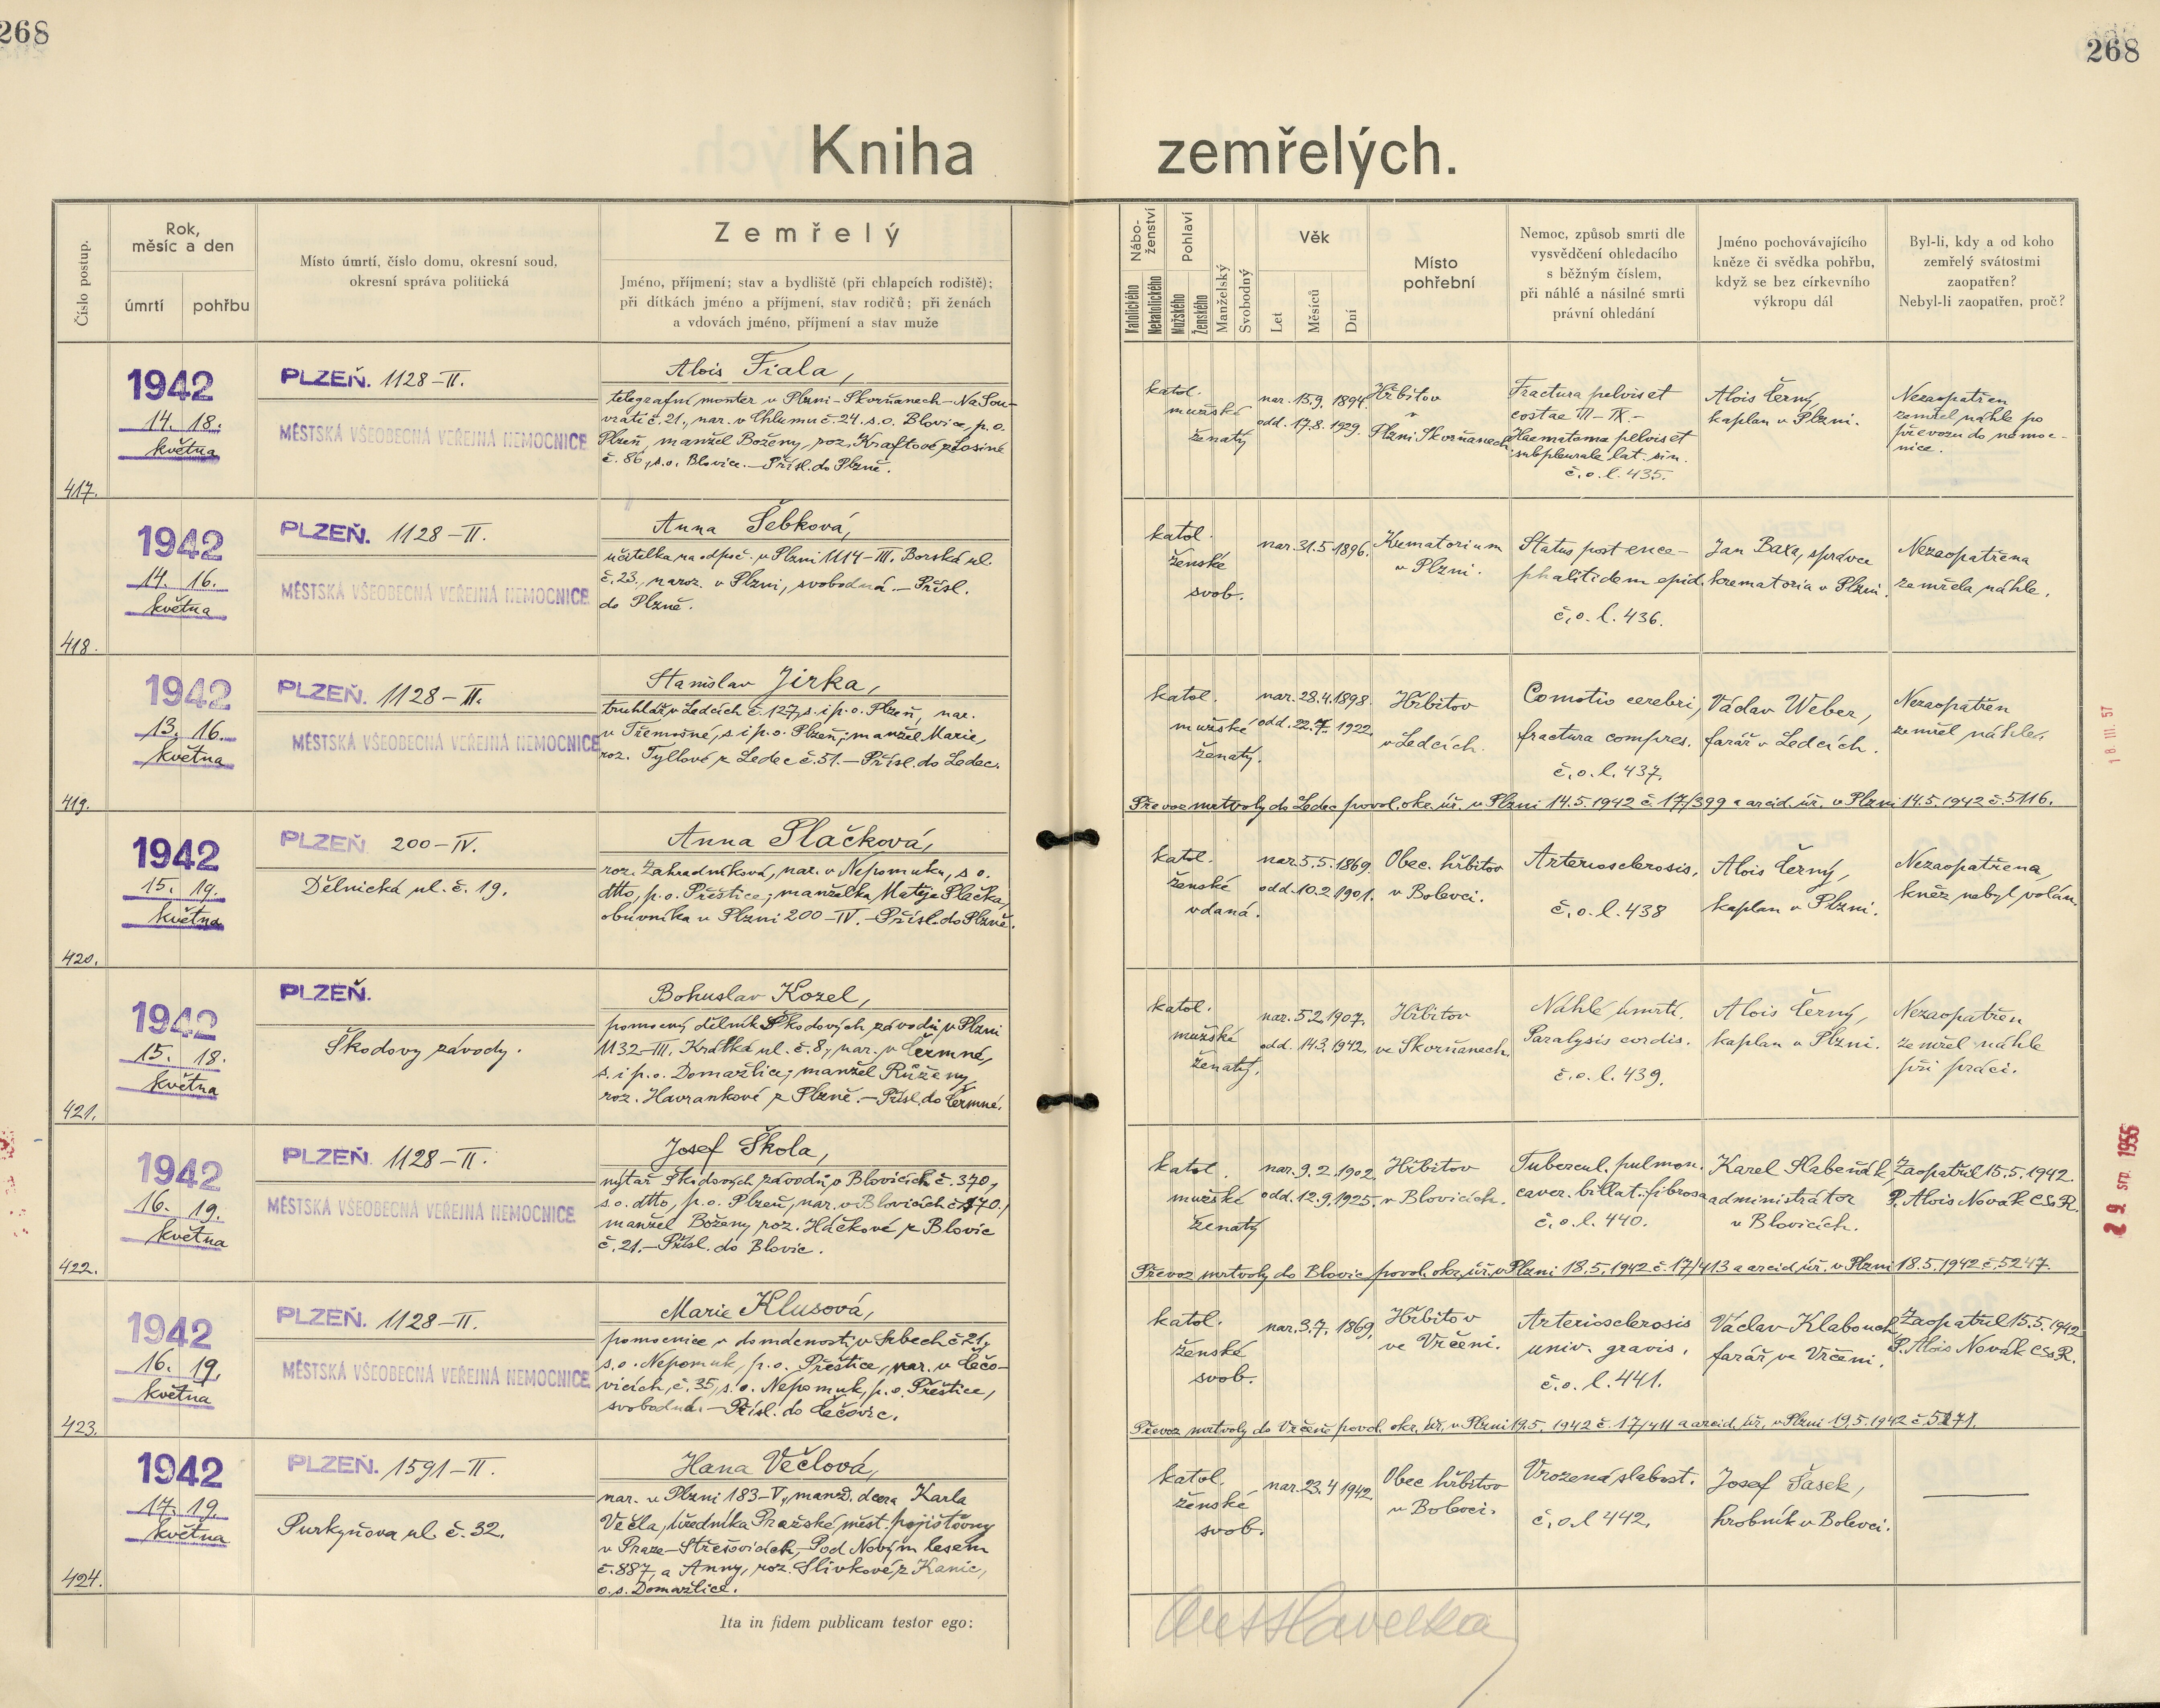 268
268
Kniha zemřelých.
Číslo postup.
Rok,
měsíc a den
úmrtí
pohřbu
Místo úmrtí, číslo domu, okresní soud,
okresní správa politická
Zemřelý
Jméno, příjmení; stav a bydliště (při chlapcích rodiště);
při dítkách jméno a příjmení, stav rodičů; při ženách
a vdovách jméno, příjmení a stav muže
Nábo-
ženství
Katolického
Nekatolického
Pohlaví
Mužského
Ženského
Manželský
Svobodný
Věk
Let
Měsíců
Dní
Místo
pohřební
Nemoc, způsob smrti dle
vysvědčení ohledacího
s běžným číslem,
při náhlé a násilné smrti
právní ohledání
Jméno pochovávajícího
kněze či svědka pohřbu,
když se bez církevního
výkropu dál
Byl-li, kdy a od koho
zemřelý svátostmi
zaopatřen?
Nebyl-li zaopatřen, proč?
417.
1942
14. 18.
května
PLZEŇ. 1128-II.
MĚSTSKÁ VŠEOBECNÁ VEŘEJNÁ NEMOCNICE
Alois Fiala,
telegrafní monter v Plzni-Skvrňanech-Na Sou-
vrati č. 21., nar. v Chlumu č. 24. s.o. Blovice, p.o.
Plzeň, manžel Boženy, roz. Kraftové z Losiné
č. 86, s.o. Blovice. - Přísl. do Plzně.
katol.
mužské
ženatý
nar. 15.9. 1894.
odd. 17.8. 1929.
Hřbitov
v
Plzni Skvrňanech
Fractura pelvis et
costae VII-IX.-
Haematoma pelvis et
subpleurale lat. sin.
č.o.l. 435.
Alois Černý,
kaplan v Plzni.
Nezaopatřen
zemřel náhle po
převozu do nemoc-
nice.
418.
1942
14. 16.
května
PLZEŇ. 1128-II.
MĚSTSKÁ VŠEOBECNÁ VEŘEJNÁ NEMOCNICE
Anna Šebková,
učitelka na odpoč. v Plzni 1114-III. Borská ul.
č. 23., naroz. v Plzni, svobodná. - Přísl.
do Plzně.
katol.
ženské
svob.
nar. 31.5 1896.
Krematorium
v Plzni.
Status post ence-
phalitidem epid.
č.o.l. 436.
Jan Baxa, správce
krematoria v Plzni.
Nezaopatřena
zemřela náhle.
419.
1942
13. 16.
května
PLZEŇ. 1128-II.
MĚSTSKÁ VŠEOBECNÁ VEŘEJNÁ NEMOCNICE
Stanislav Jirka,
truhlář v Ledcích č. 127, s. i p.o. Plzeň, nar.
v Třemošné, s. i p.o. Plzeň; manžel Marie,
roz. Tyllové z Ledec č. 51. - Přísl. do Ledec.
katol.
mužské
ženatý.
nar. 28.4.1898.
odd. 22.7. 1922.
Hřbitov
v Ledcích.
Comotio cerebri,
fractura compres.
č.o.l. 437.
Václav Weber,
farář v Ledcích.
Nezaopatřen
zemřel náhle.
Převoz mrtvoly do Ledec povol. okr. úř. v Plzni 14.5.1942 č. 17/399 a arcid. úř. v Plzni 14.5.1942 č. 5116.
420.
1942
15. 19.
května
PLZEŇ 200-IV.
Dělnická ul. č. 19.
Anna Plačková,
roz. Zahradníková, nar. v Nepomuku, s o.
dtto, p.o. Přeštice; manželka Matěje Plačka,
obuvníka v Plzni 200-IV. - Přísl. do Plzně.
katol.
ženské
vdaná.
nar. 5.5. 1869.
odd. 10.2. 1901.
Obec. hřbitov
v Bolevci.
Arteriosclerosis.
č.o.l. 438
Alois Černý,
kaplan v Plzni.
Nezaopatřena,
kněz nebyl volán.
421.
1942
15. 18.
května
PLZEŇ.
Škodovy závody.
Bohuslav Kozel,
pomocný dělník Škodových závodů, v Plzni
1132-III. Krátká ul. č. 8, nar. v Čermné,
s. i p.o. Domažlice; manžel Růženy,
roz. Havrankové z Plzně. - Přísl. do Čermné.
katol.
mužské
ženatý.
nar. 5.2.1907.
odd. 14.3. 1942.
Hřbitov
ve Skvrňanech.
Náhlé úmrtí.
Paralysis cordis.
č.o.l. 439.
Alois Černý,
kaplan v Plzni.
Nezaopatřen
zemřel náhle
při práci.
422.
1942
16. 19.
května
PLZEŇ. 1128-II.
MĚSTSKÁ VŠEOBECNÁ VEŘEJNÁ NEMOCNICE
Josef Škola,
nýtař Škodových závodů, v Blovicích č. 370,
s.o. dtto, p.o. Plzeň, nar. v Blovicích č. 170.,
manžel Boženy, roz. Háčkové z Blovic
č. 21. - Přísl. do Blovic.
katol.
mužské
ženatý
nar. 9.2. 1902.
odd. 12.9. 1925.
Hřbitov
v Blovicích.
Tubercul. pulmon.
caver. billat. fibrosa
č.o.l. 440.
Karel Slabeňák,
administrátor
v Blovicích.
Zaopatřil 15.5. 1942.
P. Alois Novák CSsR.
Převoz mrtvoly do Blovic povol. okr. úř. v Plzni 18.5.1942 č. 17/413 a arcid. úř. v Plzni 18.5.1942 č. 5247.
423.
1942
16. 19.
května
PLZEŇ. 1128-II.
MĚSTSKÁ VŠEOBECNÁ VEŘEJNÁ NEMOCNICE
Marie Klusová,
pomocnice v domácnosti, v Srbech č. 21,
s.o. Nepomuk, p.o. Přeštice, nar. v Čečo-
vicích, č. 35, s.o. Nepomuk, p.o. Přeštice,
svobodná. - Přísl. do Čečovic.
katol.
ženské
svob.
nar. 3.7. 1869.
Hřbitov
ve Vrčeni.
Arteriosclerosis
univ. gravis.
č.o.l. 441.
Václav Klabouch,
farář ve Vrčeni.
Zaopatřil 15.5. 1942
P. Alois Novák CSsR.
Převoz mrtvoly do Vrčeně povol. okr. úř. v Plzni 19.5. 1942 č. 17/411 a arcid. úř. v Plzni 19.5.1942 č.
424.
1942
17. 19.
května
PLZEŇ. 1591-II.
Purkyňova ul. č. 32.
Hana Večlová,
nar. v Plzni 183-V., manž. dcera Karla
Večla, úředníka Pražské měst. pojišťovny
v Praze-Střešovicích, Pod Novým lesem
č. 887, a Anny, roz. Slivkové z Kanic,
o.s. Domažlice.
katol.
ženské
svob.
nar. 23.4 1942
Obec hřbitov
v Bolevci.
Vrozená slabost.
č.o.l 442.
Josef Šašek,
hrobník v Bolevci.
Ita in fidem publicam testor ego:
18. III. 57
29. srp. 1955